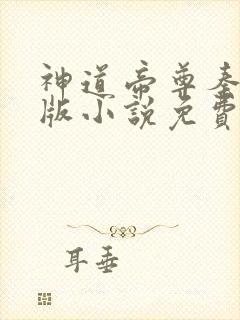 神道帝尊秦
版小說免費
耳垂